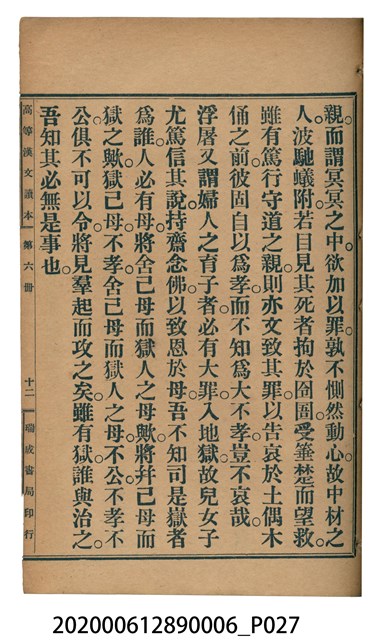 親而謂冥冥之中欲加以罪孰不惻然動心故中材之
人波馳蟻附若目見其死者拘於囹圄受箠楚而望救
雖有篤行守道之親則亦文致其罪以告哀於土偶木
俑之前彼固自以為孝而不知為大不孝豈不哀哉
浮屠又謂婦人之育子者必有大罪入地獄故兒女子
尤篤信其說持齋念佛以致恩於母吾不知司是嶽者
為誰人必有母將舍己母而獄人之母歟將幷己母而
獄之歟獄己母不孝舍己母而獄人之母不公不孝不
公俱不可以令將見羣起而攻之矣雖有獄誰與治之
吾知其必無是事也
高等漢文讀本 第六冊 十二 瑞成書局印行
202000612890006_P027